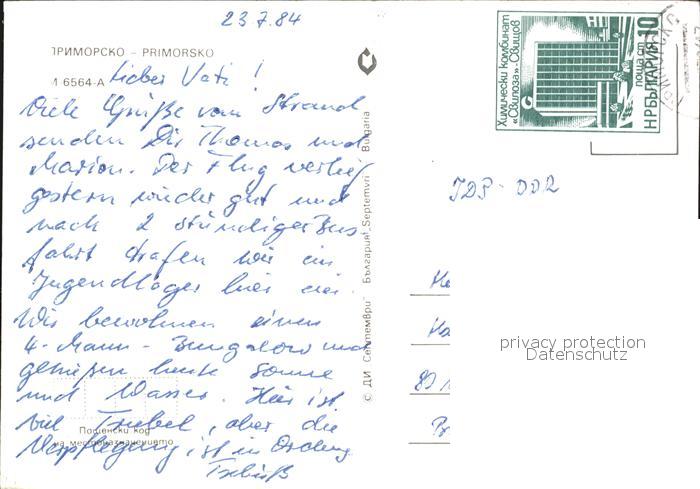 23.7.84
ПРИМОРСКО – PRIMORSKO
М 6564-А
Lieber Vati!
Viele Grüße vom Strand
senden Dir Thomas und
Marion. Der Flug verlief
gestern wieder gut und
nach 2 stündiger Bus-
fahrt trafen wir im
Jugendlager hier ein.
Wir bewohnen einen
4-Mann-Bungalow und
genießen heute Sonne
und Wasser. Hier ist
viel Trubel, aber die
Verpflegung ist in Ordnung
Tschüß
Пощенски код
на местоназначението
© ДИ "Септември" България "Septemvri" Bulgaria
Химически комбинат
«Свилоза»-Свищов
поща ст 10
НР БЪЛГАРИЯ
DDR
privacy protection
Datenschutz